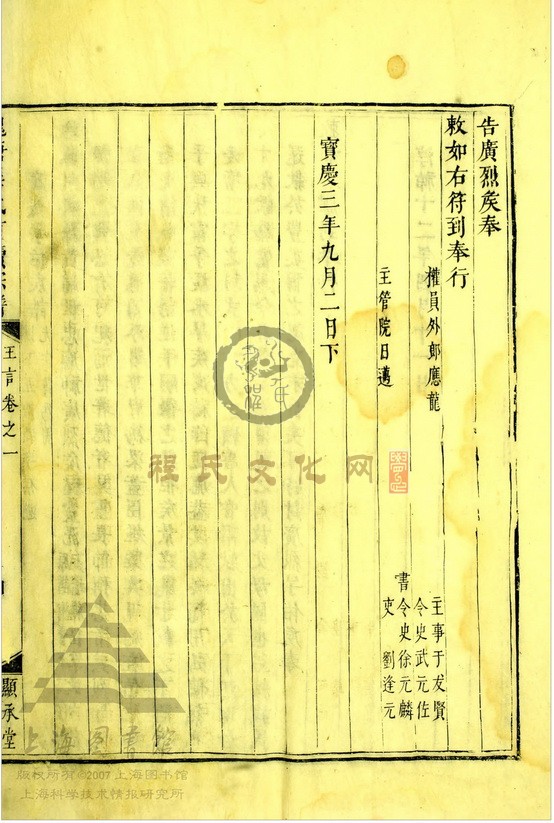 告廣烈矦奉
敕如右符到奉行
權員外郎應龍
主事于发賢
令史武元佐
主管院日邁
書令史徐元麟
吏劉逢元
寶慶三年九月二日下
王言卷之一
顯承堂
程氏文化网
上海图书馆
版权所有©2007上海图书馆
上海科学技术情报研究所